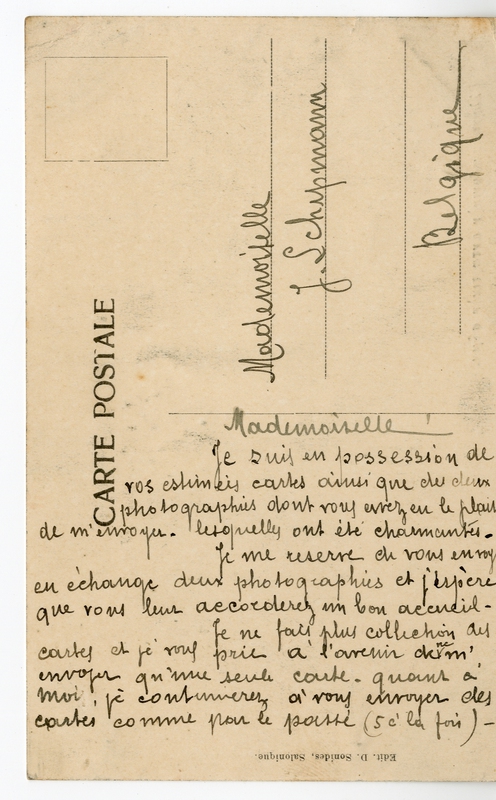 CARTE POSTALE
Mademoiselle
J. Schipmann
Belgique
Mademoiselle!
Je suis en possession de
vos estimées cartes ainsi que des deux
photographies dont vous avez eu le plais
de m'envoyer. lesquelles ont été charmantes.
Je me reserve de vous envoy
en èchange deux photographies et j'espère
que vous leur accorderez un bon accueil-
Je ne fais plus collection des
cartes et je vous prie à l'avenir de ne m'
envoyer qu'une seule carte. quant à
moi je continuerez à vous envoyer des
cartes comme par le passé (5 à la fois)-
Edit. D. Sonides, Salonique.